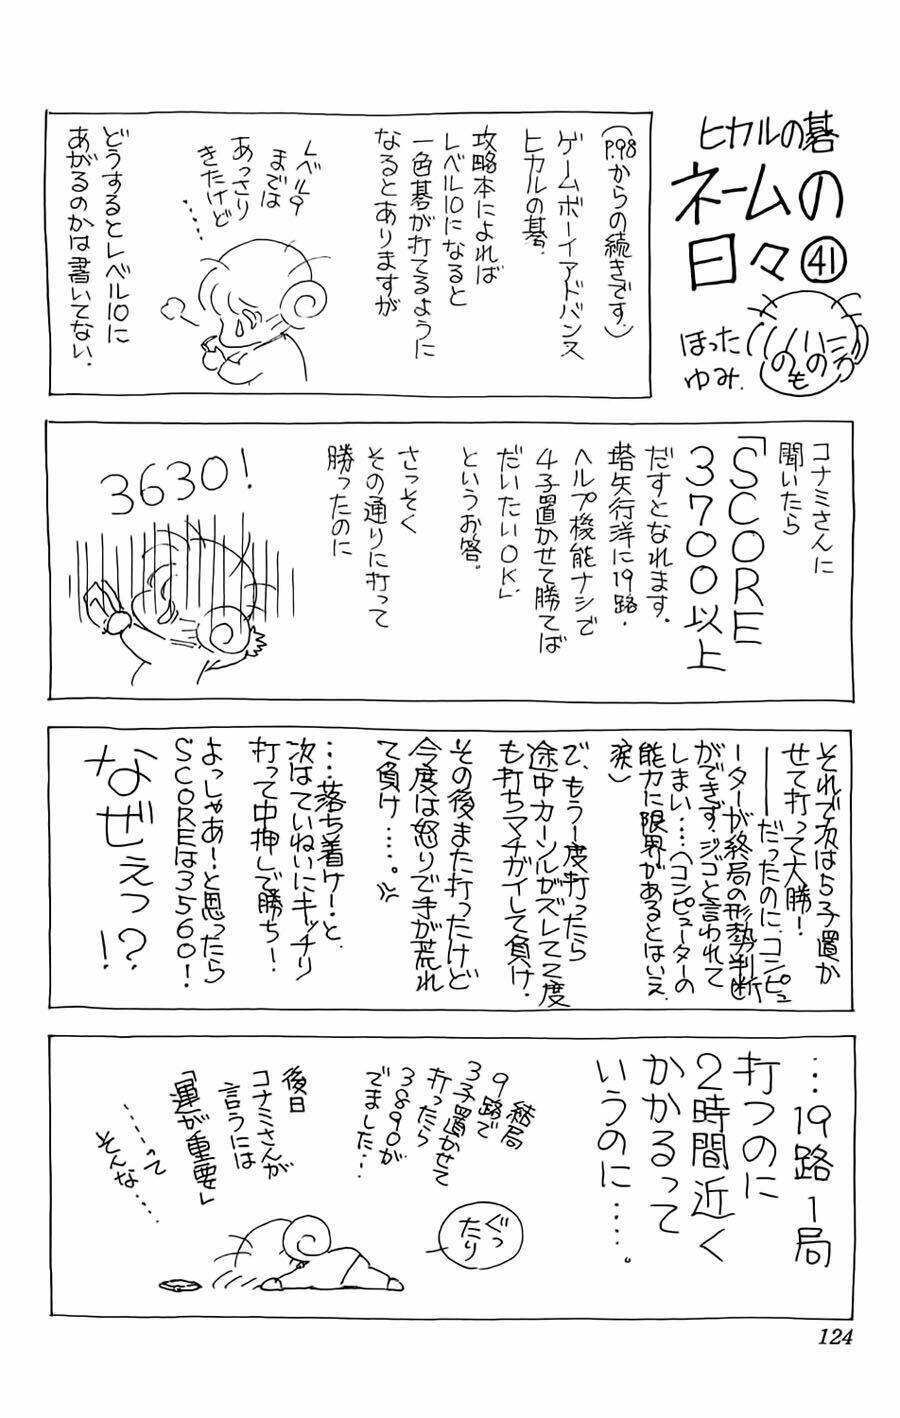 ヒカルの碁
ネームの
日々㊶
ほった
ゆみ.
(P.98からの続きです.)
ゲームボーイアドバンス
ヒカルの碁.
攻略本によれば
レベル10になると
一色碁が打てるように
なるとありますが
レベル9
までは
あっさり
きたけど
……
どうするとレベル10に
あがるのかは書いてない.
コナミさんに
聞いたら
「SCORE
3700以上
だすとなれます.
塔矢行洋に19路.
ヘルプ機能ナシで
4子置かせて勝てば
だいたいOK」
というお答.
さっそく
その通りに打って
勝ったのに
3630!
それで次は5子置か
せて打って大勝!
――だったのに、コンピュ
ーターが終局の形勢判断
ができず.ジゴと言われて
しまい…(コンピューターの
能力に限界があるとはいえ
涙)
で、もう1度打ったら
途中カーソルがズレて2度
も打ちマチガイして負け.
その後また打ったけど
今度は怒りで手が荒れ
て負け……。
…落ち着け!と.
次はていねいにキッチリ
打って中押しで勝ち!
よっしゃあ!と思ったら
SCOREは3560!
なぜぇっ!?
…19路1局
打つのに
2時間近く
かかるって
いうのに……。
結局
9路で
3子置かせて
打ったら
3890が
でました…
後日
コナミさんが
言うには
「運が重要」
……って
そんな……
ぐっ
たり
124